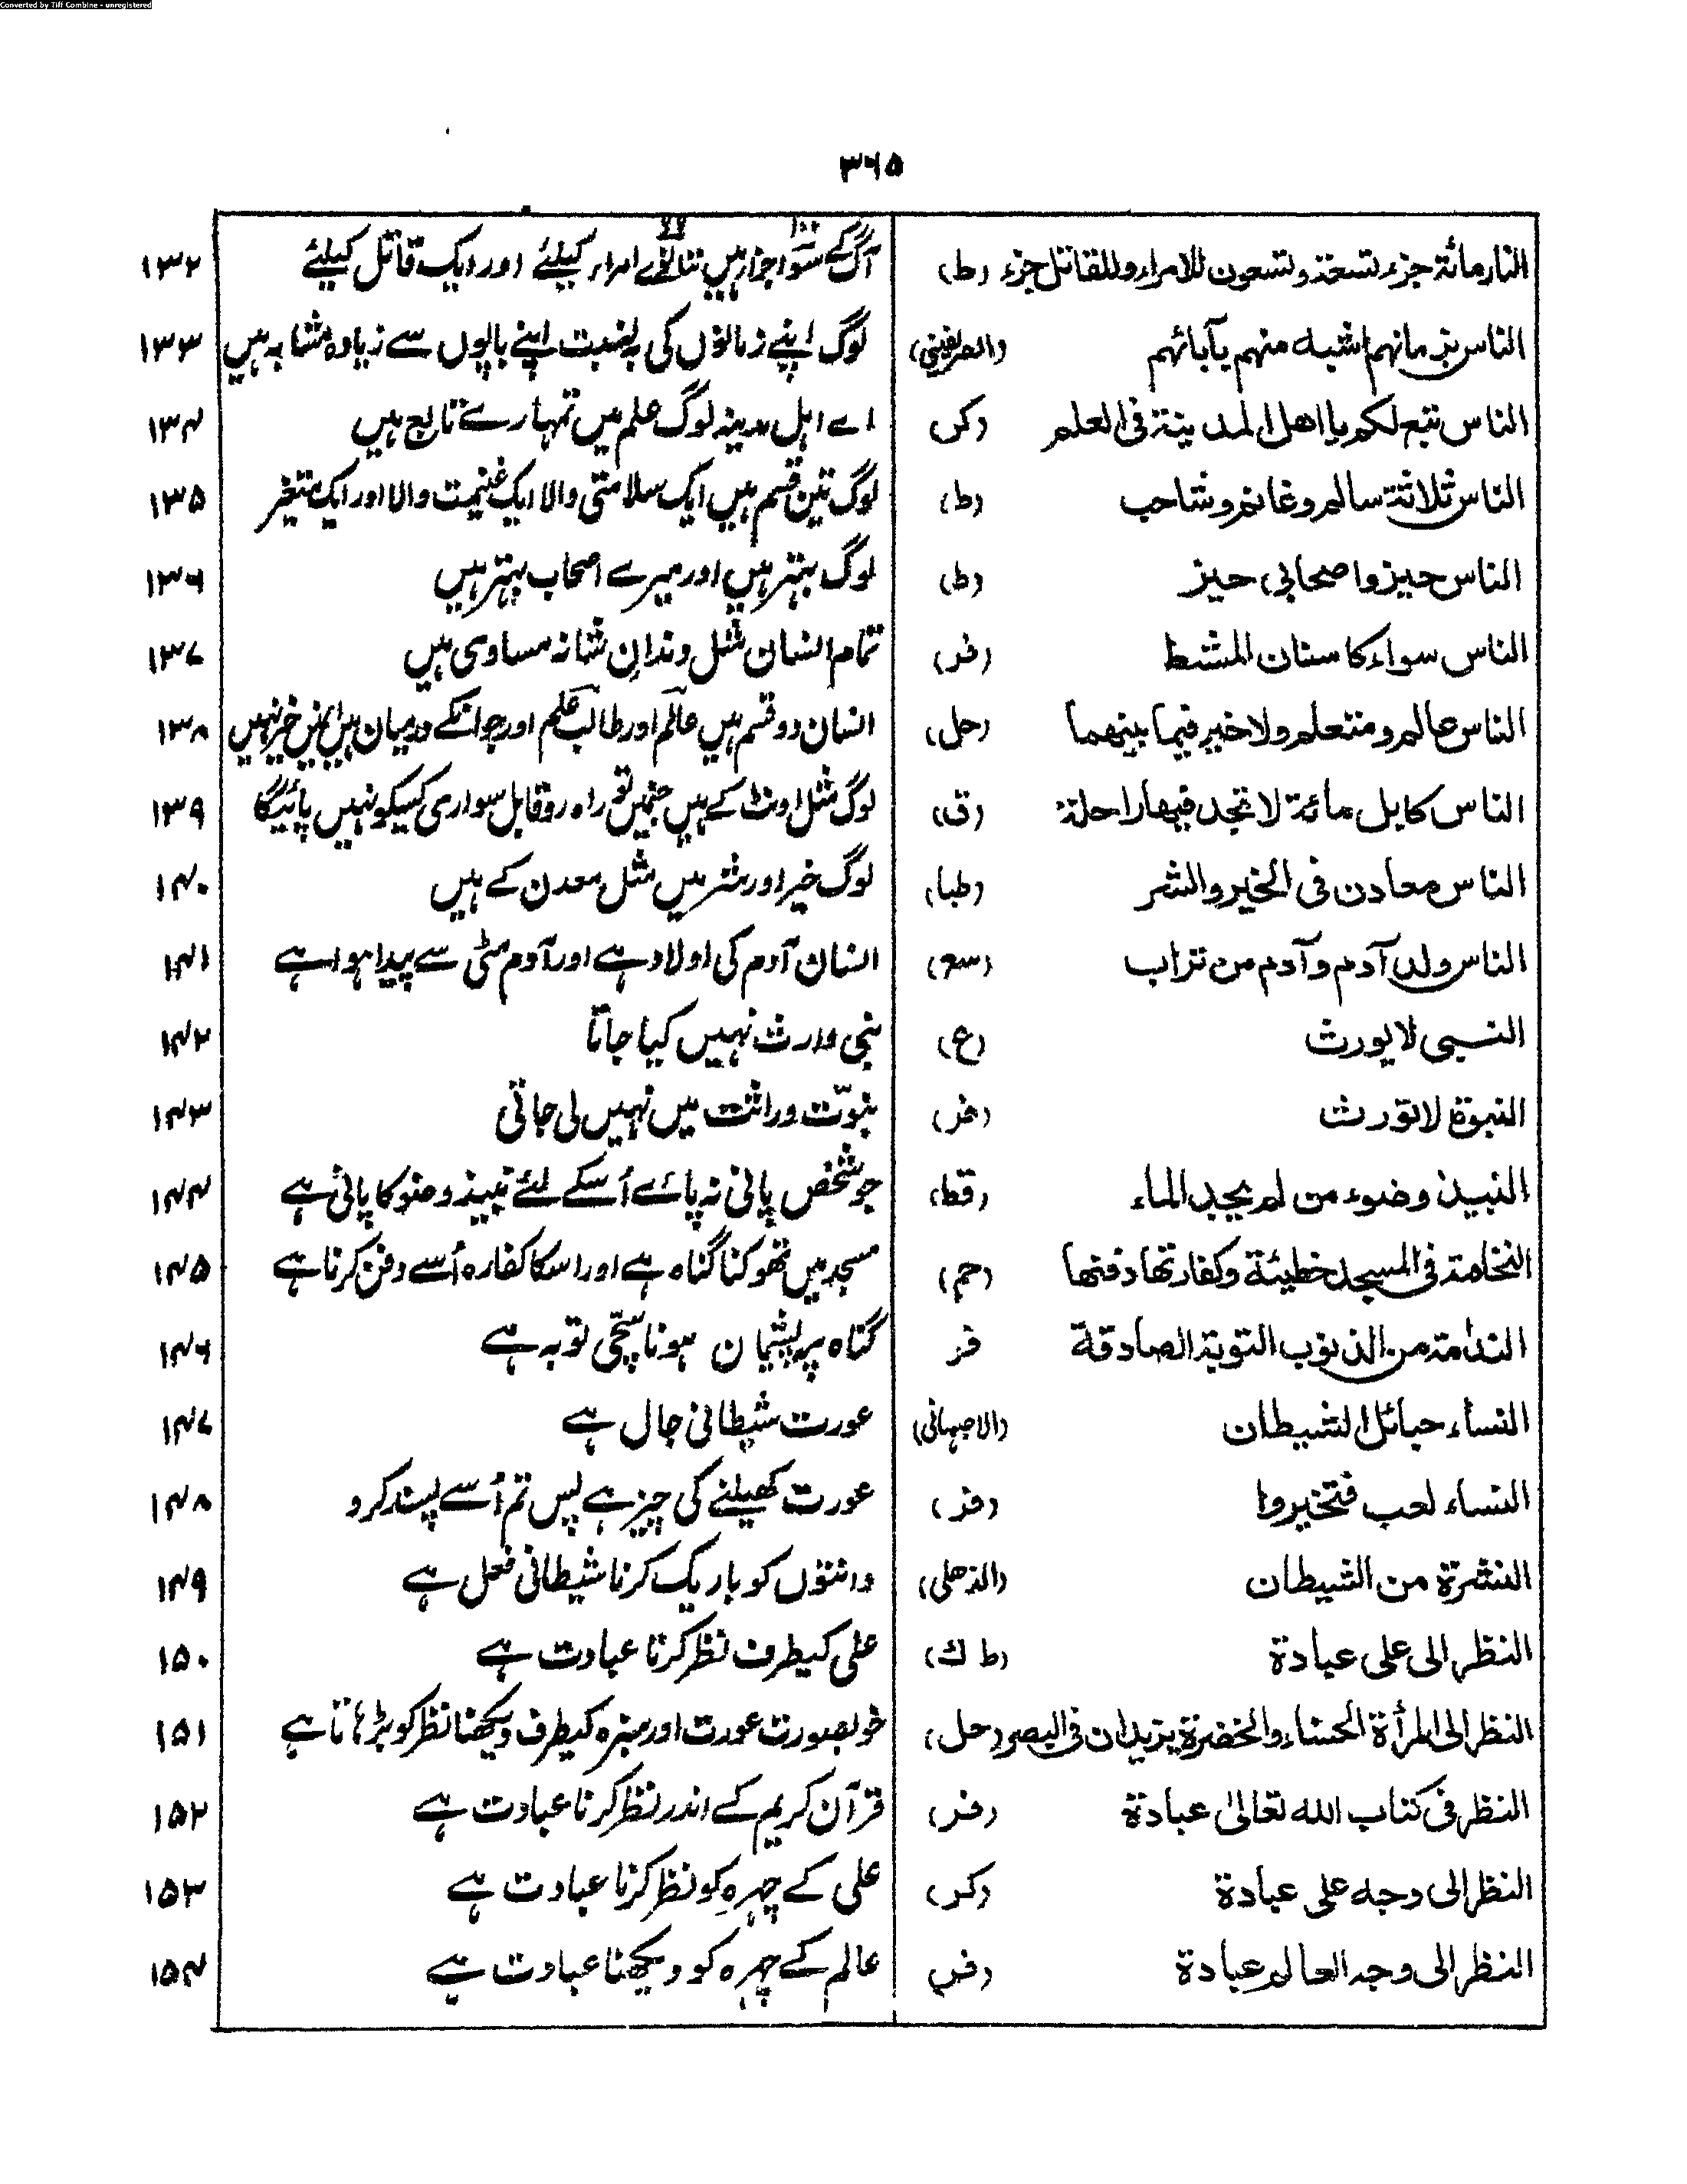 Converted by Tiff Combine - unregistered
۳۶۵
النار مائة جزء تسعة وتسعون للامراء وللقاتل جزء (ط) آگ کے سَو اجزا ہیں ننانوے امراء کیلئے اور ایک قاتل کیلئے ۱۳۲
الناس بزمانهم اشبه منهم بآبائهم لوگ اپنے زمانوں کی بہ نسبت اپنے باپوں سے زیادہ مشابہ ہیں ۱۳۳
الناس تبع لكم يا اهل المدينة فى العلم (كر) اے اہل مدینہ لوگ علم میں تمہارے تابع ہیں ۱۳۴
الناس ثلاثة سالم وغانم وشاحب (ط) لوگ تین قسم ہیں ایک سلامتی والا ایک غنیمت والا اور ایک متغیر ۱۳۵
الناس حيز واصحابى حيز (ط) لوگ بہتر ہیں اور میرے اصحاب بہتر ہیں ۱۳۶
الناس سواء كاسنان المشط (فر) تمام انسان مثل دندانِ شانہ مساوی ہیں ۱۳۷
الناس عالم ومتعلم ولا خير فيما بينهما (حل) انسان دو قسم ہیں عالم اور طالب علم اور جو انکے درمیان ہیں انمیں خیر نہیں ۱۳۸
الناس كابل مائة لا تجد فيها راحلة (ق) لوگ مثل اونٹ کے ہیں جنمیں تو راہ رو قابل سواری کسیکو نہیں پائیگا ۱۳۹
الناس معادن فى الخير والشر (طبا) لوگ خیر اور شر میں مثل معدن کے ہیں ۱۴۰
الناس ولد آدم وآدم من تراب (سع) انسان آدم کی اولاد ہے اور آدم مٹی سے پیدا ہوا ہے ۱۴۱
النبى لا يورث (ع) نبی وارث نہیں کیا جاتا ۱۴۲
النبوة لا تورث (فر) نبوّت وراثت میں نہیں لی جاتی ۱۴۳
النبيذ وضوء من لم يجد الماء (قط) جو شخص پانی نہ پائے اُسکے لئے نبیذ وضو کا پانی ہے ۱۴۴
النخامة فى المسجد خطيئة وكفارتها دفنها (حم) مسجد میں تھوکنا گناہ ہے اور اسکا کفارہ اُسے دفن کرنا ہے ۱۴۵
الندامة من الذنوب التوبة الصادقة فر گناہ پر پشیمان ہونا سچّی توبہ ہے ۱۴۶
النساء حبائل الشيطان (الاصبهانى) عورت شیطانی جال ہے ۱۴۷
النساء لعب فتخيروا (فر) عورت کھیلنے کی چیز ہے پس تم اُسے پسند کرو ۱۴۸
النشرة من الشيطان (الذهلى) دانتوں کو باریک کرنا شیطانی فعل ہے ۱۴۹
النظر الى على عبادة (ط ك) علی کیطرف نظر کرنا عبادت ہے ۱۵۰
النظر الى المرأة الحسناء والخضرة يزيدان فى البصر (حل) خوبصورت عورت اور سبزہ کیطرف دیکھنا نظر کو بڑہاتا ہے ۱۵۱
النظر فى كتاب الله تعالىٰ عبادة (فر) قرآن کریم کے اندر نظر کرنا عبادت ہے ۱۵۲
النظر الى وجه على عبادة (كر) علی کے چہرہ کو نظر کرنا عبادت ہے ۱۵۳
النظر الى وجه العالم عبادة (فر) عالم کے چہرہ کو دیکھنا عبادت ہے ۱۵۴